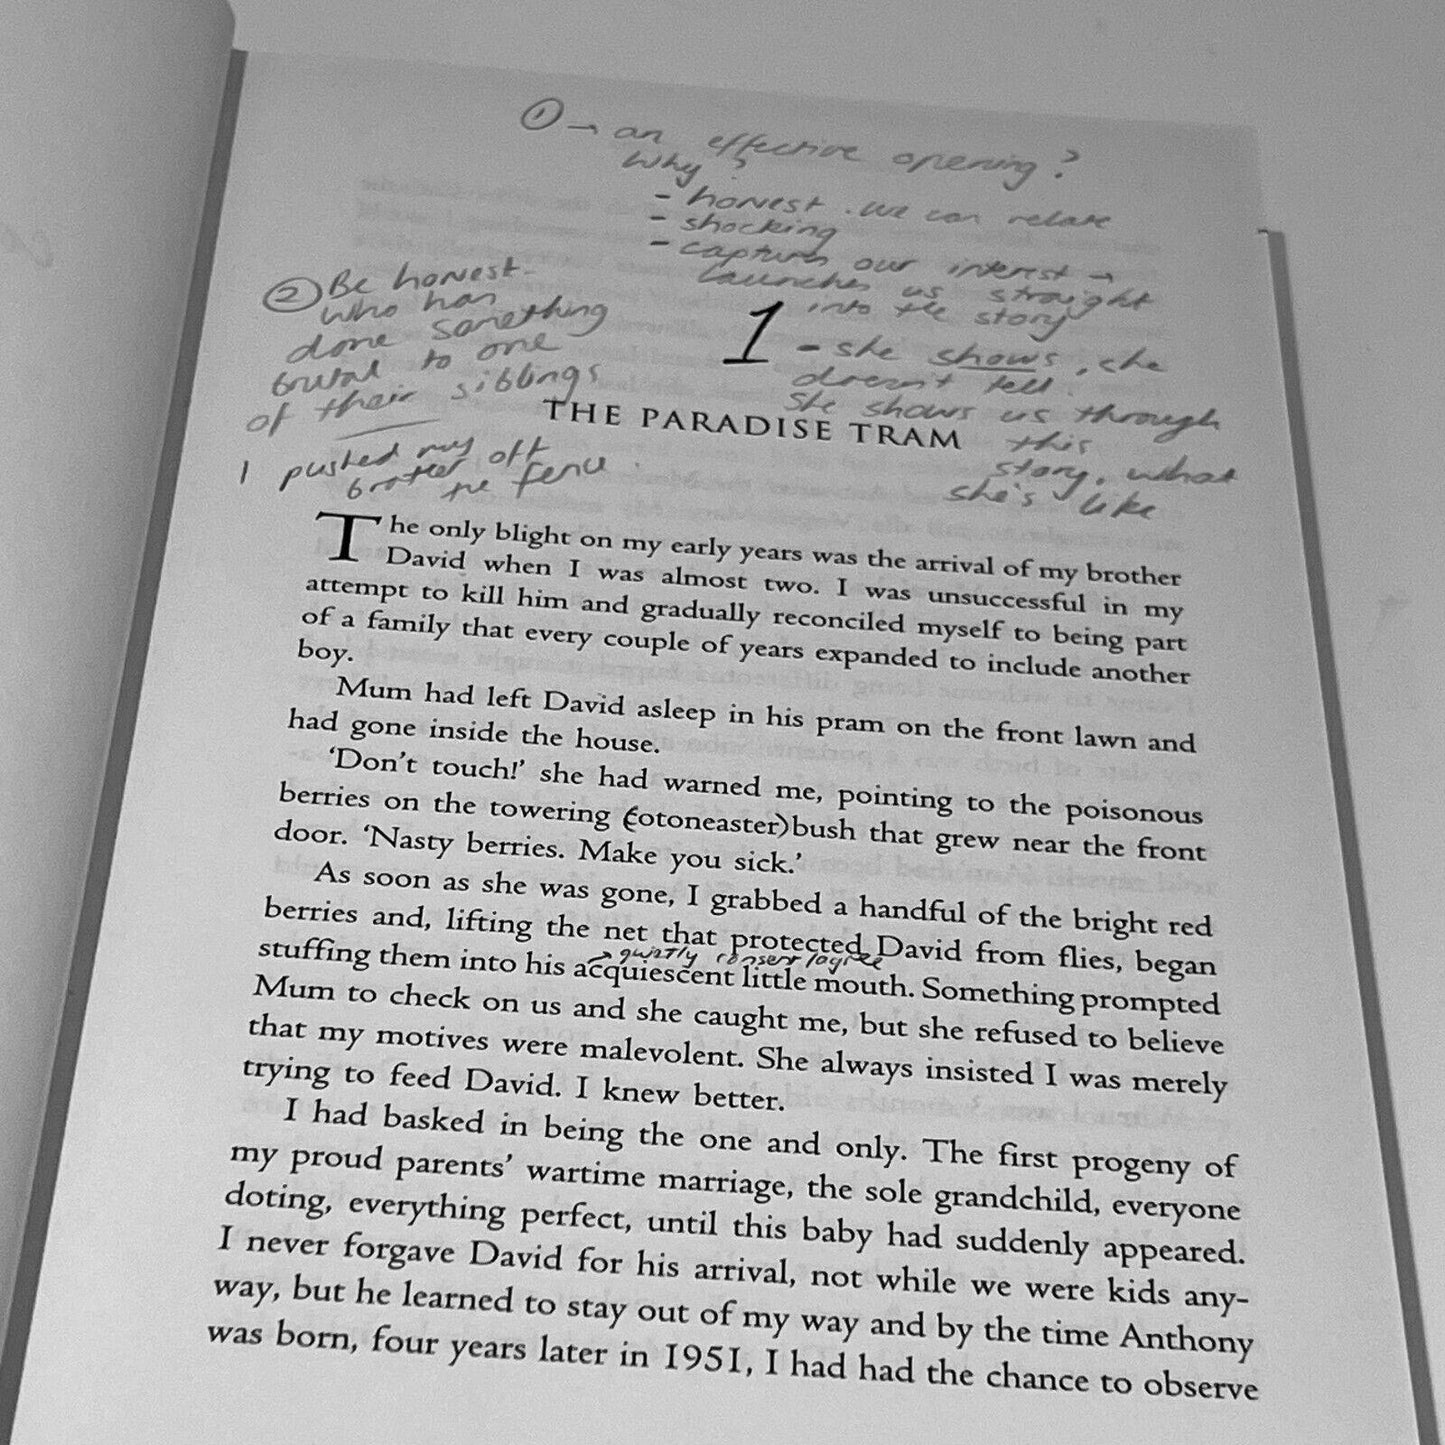 ① → an effective opening?
Why?
- honest. we can relate
- shocking
- captures our interest →
launches us straight
into the story
- she shows, she
doesn't tell.
She shows us through
this
story, what
she's like
② Be honest.
who has
done something
brutal to one
of their siblings
I pushed my
brother off
the fence.
1
THE PARADISE TRAM
The only blight on my early years was the arrival of my brother
David when I was almost two. I was unsuccessful in my
attempt to kill him and gradually reconciled myself to being part
of a family that every couple of years expanded to include another
boy.
Mum had left David asleep in his pram on the front lawn and
had gone inside the house.
‘Don't touch!’ she had warned me, pointing to the poisonous
berries on the towering (cotoneaster) bush that grew near the front
door. ‘Nasty berries. Make you sick.’
As soon as she was gone, I grabbed a handful of the bright red
berries and, lifting the net that protected David from flies, began
→ quietly consent/agree
stuffing them into his acquiescent little mouth. Something prompted
Mum to check on us and she caught me, but she refused to believe
that my motives were malevolent. She always insisted I was merely
trying to feed David. I knew better.
I had basked in being the one and only. The first progeny of
my proud parents’ wartime marriage, the sole grandchild, everyone
doting, everything perfect, until this baby had suddenly appeared.
I never forgave David for his arrival, not while we were kids any-
way, but he learned to stay out of my way and by the time Anthony
was born, four years later in 1951, I had had the chance to observe